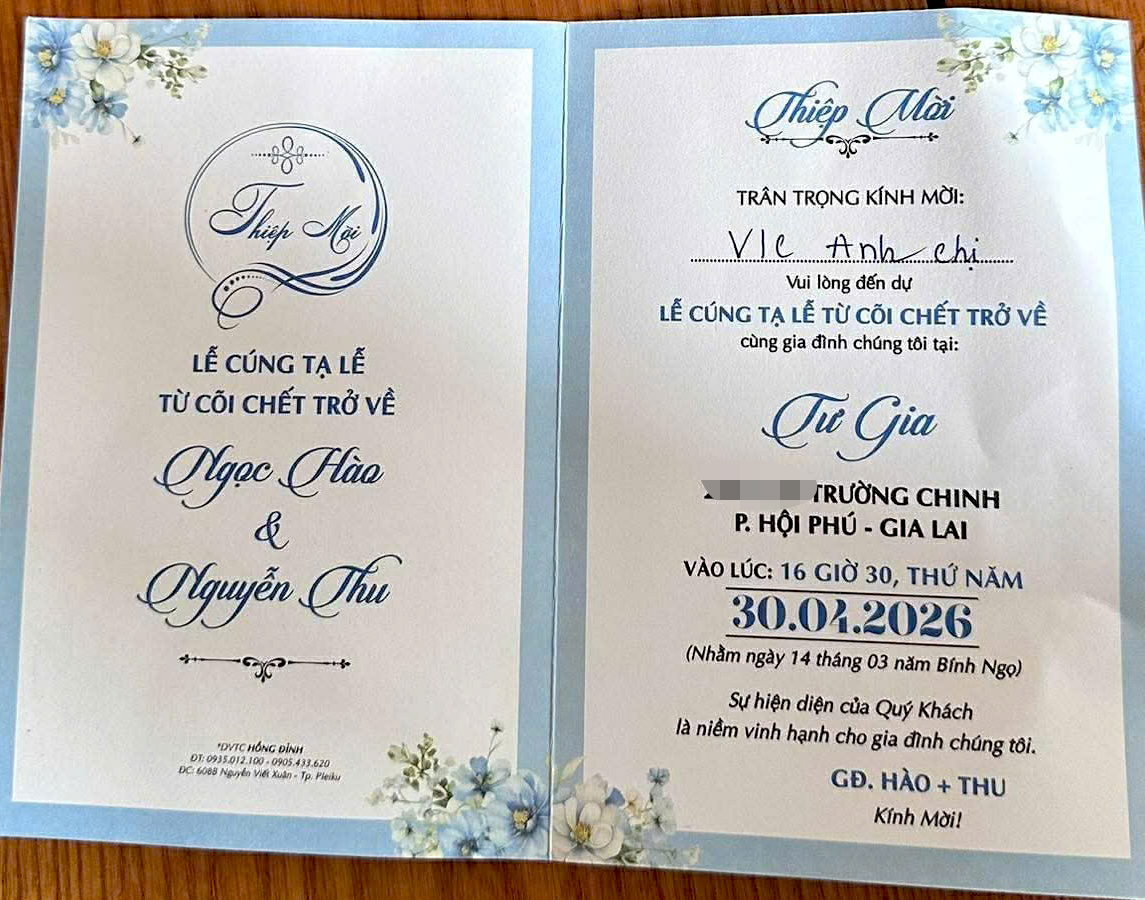 Thiệp Mời
LỄ CÚNG TẠ LỄ
TỪ CÕI CHẾT TRỞ VỀ
Ngọc Hào
&
Nguyễn Thu
*DVTC HỒNG ĐỈNH
ĐT: 0935.012.100 - 0905.433.620
ĐC: 608B Nguyễn Viết Xuân - Tp. Pleiku
Thiệp Mời
TRÂN TRỌNG KÍNH MỜI:
V/C Anh chị
Vui lòng đến dự
LỄ CÚNG TẠ LỄ TỪ CÕI CHẾT TRỞ VỀ
cùng gia đình chúng tôi tại:
Tư Gia
TRƯỜNG CHINH
P. HỘI PHÚ - GIA LAI
VÀO LÚC: 16 GIỜ 30, THỨ NĂM
30.04.2026
(Nhằm ngày 14 tháng 03 năm Bính Ngọ)
Sự hiện diện của Quý Khách
là niềm vinh hạnh cho gia đình chúng tôi.
GĐ. HÀO + THU
Kính Mời!